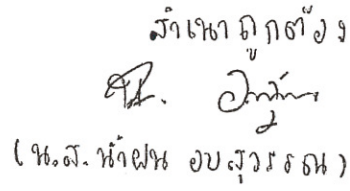 สำเนาถูกต้อง
(น.ส.น้ำฝน อบสุวรรณ)